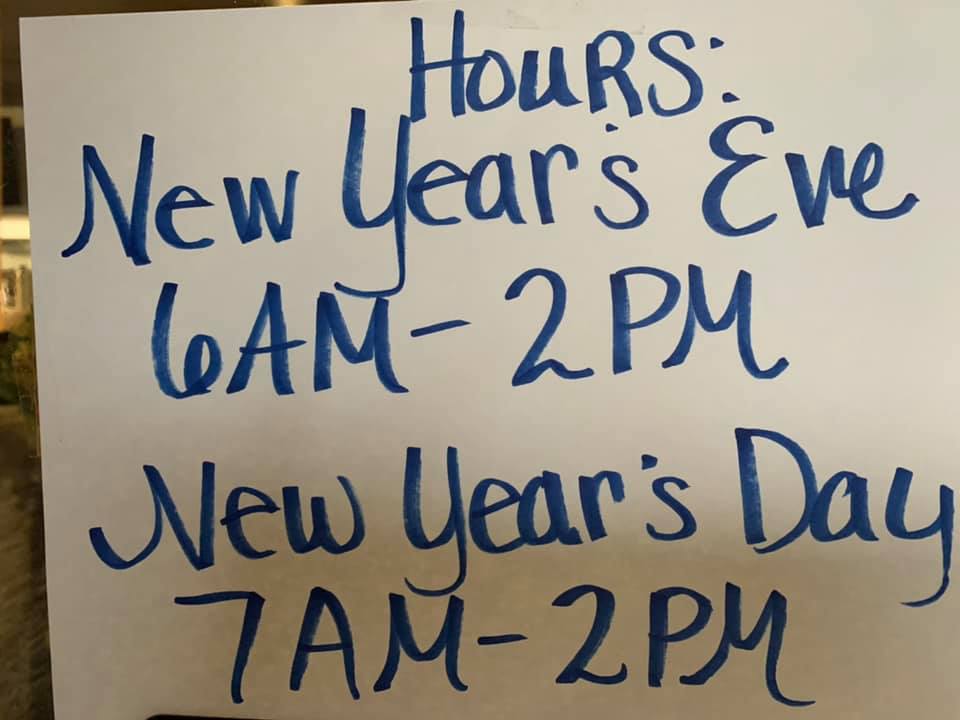 HOURS:
New Year's Eve
6AM - 2PM
New Year's Day
7AM - 2PM